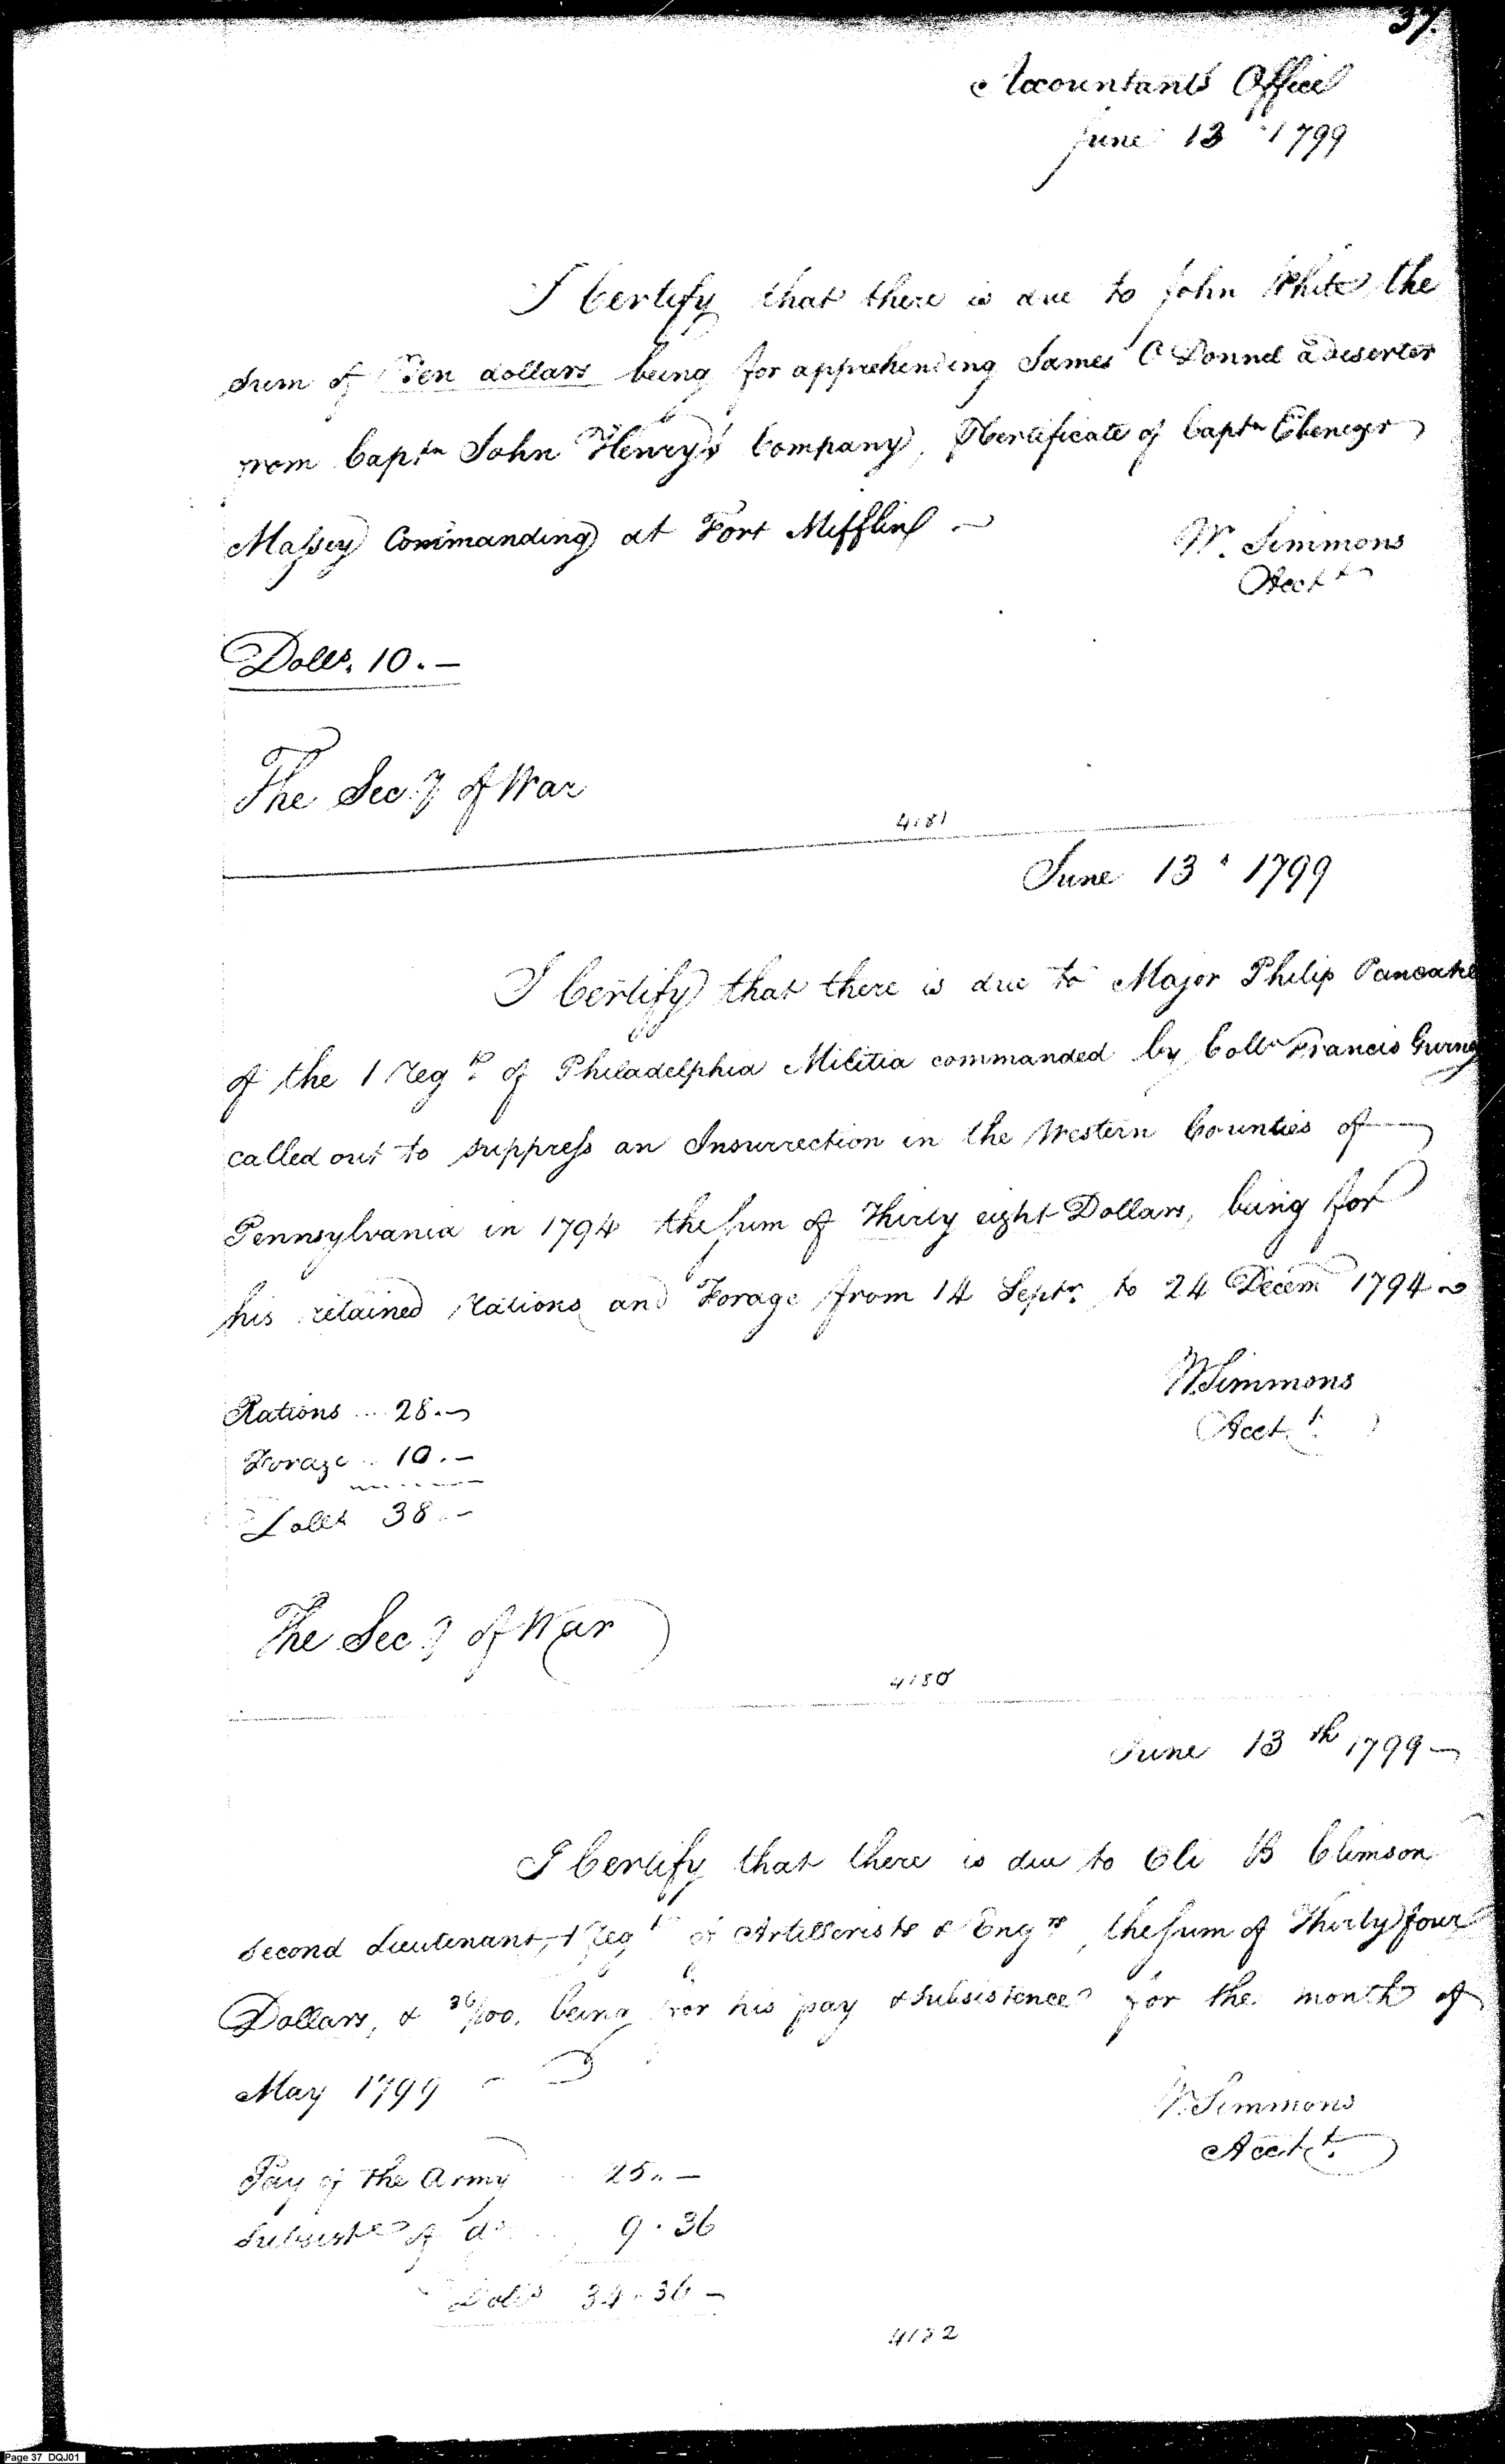 37.
Accountants Office
June 13 1799
I Certify that there is due to John White, the
sum of Ten dollars being for apprehending James O Donnel a deserter
from Captn John Henry's Company, Certificate of Captn Ebenezer
Massey Commanding at Fort Mifflin
W. Simmons
Acct
Dolls. 10.—
The Secy of War
4181
June 13 1799
I Certify that there is due to Major Philip Pancake
of the 1 Regt of Philadelphia Militia commanded by Colln Francis Gurney
called out to suppress an Insurrection in the Western Counties of
Pennsylvania in 1794 the sum of Thirty eight Dollars, being for
his retained rations and Forage from 14 Septr. to 24 Decem 1794
W. Simmons
Acct
Rations ... 28.—
Forage .. 10.—
Dolls 38.—
The Secy of War
4180
June 13th 1799—
I Certify that there is due to Eli B Climson
second Lieutenant, 1 Regt of Artillerists & Engrs, the sum of Thirty four
Dollars, & 36/100, being for his pay & subsistence for the month of
May 1799
W. Simmons
Acctt.
Pay of the Army .. 25.—
Subsistce of do ... 9.36
Dolls 34.36—
4182
Page 37 DQJ01